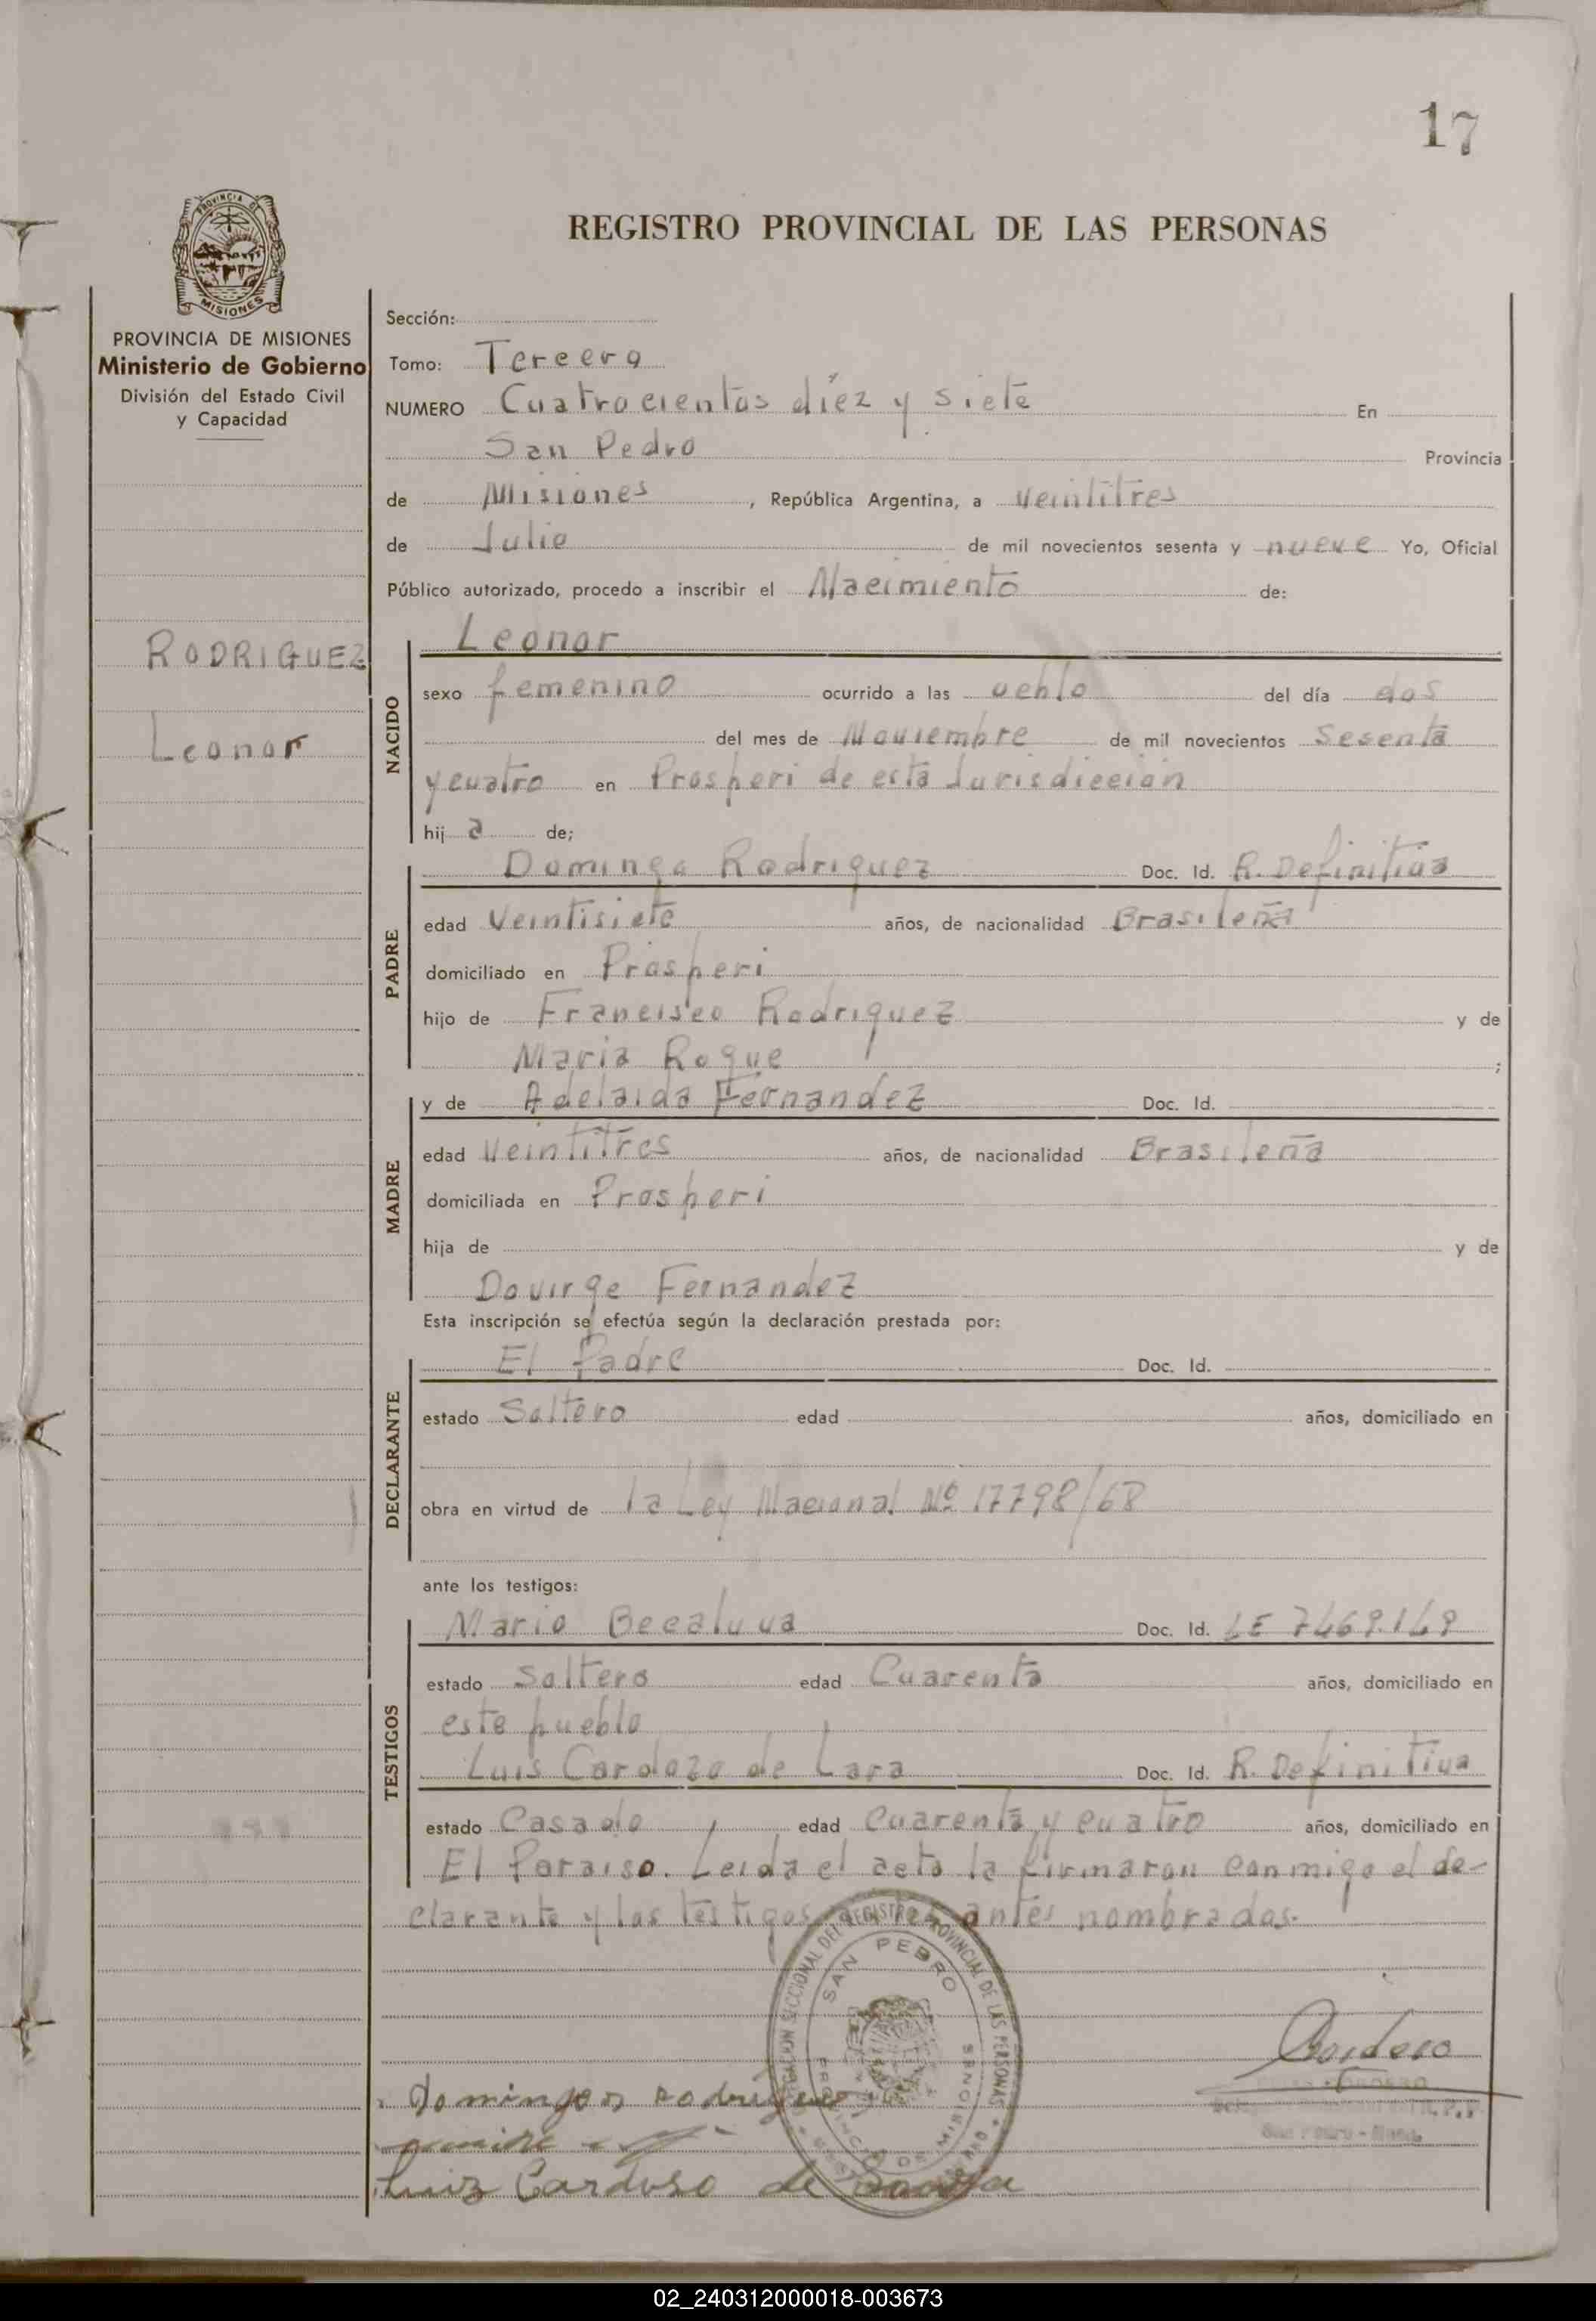 17
PROVINCIA DE
MISIONES
REGISTRO PROVINCIAL DE LAS PERSONAS
PROVINCIA DE MISIONES
Ministerio de Gobierno
División del Estado Civil
y Capacidad
RODRIGUEZ
Leonor
Sección:
Tomo: Tercero
NUMERO Cuatrocientos díez y siete En
San Pedro Provincia
de Misiones, República Argentina, a veintitres
de Julio de mil novecientos sesenta y nueve Yo, Oficial
Público autorizado, procedo a inscribir el Nacimiento de:
NACIDO
Leonor
sexo femenino ocurrido a las ocho del día dos
del mes de Noviembre de mil novecientos Sesenta
y cuatro en Prosperi de esta Jurisdiccion
hija de;
PADRE
Domingo Rodriguez Doc. Id. R. Definitiva
edad Veintisiete años, de nacionalidad Brasileña
domiciliado en Prosperi
hijo de Francisco Rodriguez y de
Maria Roque ;
MADRE
y de Adelaida Fernandez Doc. Id.
edad Veintitres años, de nacionalidad Brasileña
domiciliada en Prosperi
hija de y de
Dovirge Fernandez
Esta inscripción se efectúa según la declaración prestada por:
DECLARANTE
El Padre Doc. Id.
estado Soltero edad años, domiciliado en
obra en virtud de la Ley Nacional Nº 17798/68
ante los testigos:
TESTIGOS
Mario Beealuva Doc. Id. LE 7469.149
estado Soltero edad Cuarenta años, domiciliado en
este pueblo
Luis Cardozo de Lara Doc. Id. R. Definitiva
estado Casado, edad Cuarenta y cuatro años, domiciliado en
El Paraiso. Leida el acta la firmaron conmigo el de-
clarante y los testigos antes nombrados.
SECCIONAL DEL REGISTRO PROVINCIAL DE LAS PERSONAS
SAN PEDRO
PROVINCIA DE MISIONES
Cordero
Domingos Rodrigues
Luiz Cardoso de
02_240312000018-003673